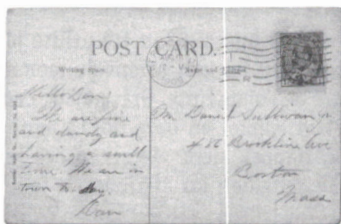 POST CARD.
Writing Space
Hello Dan
We are fine
and dandy and
having a swell
time. We are in
town to-day
Dan
Mr Daniel Sullivan
486 Brookline Ave
Boston
Mass